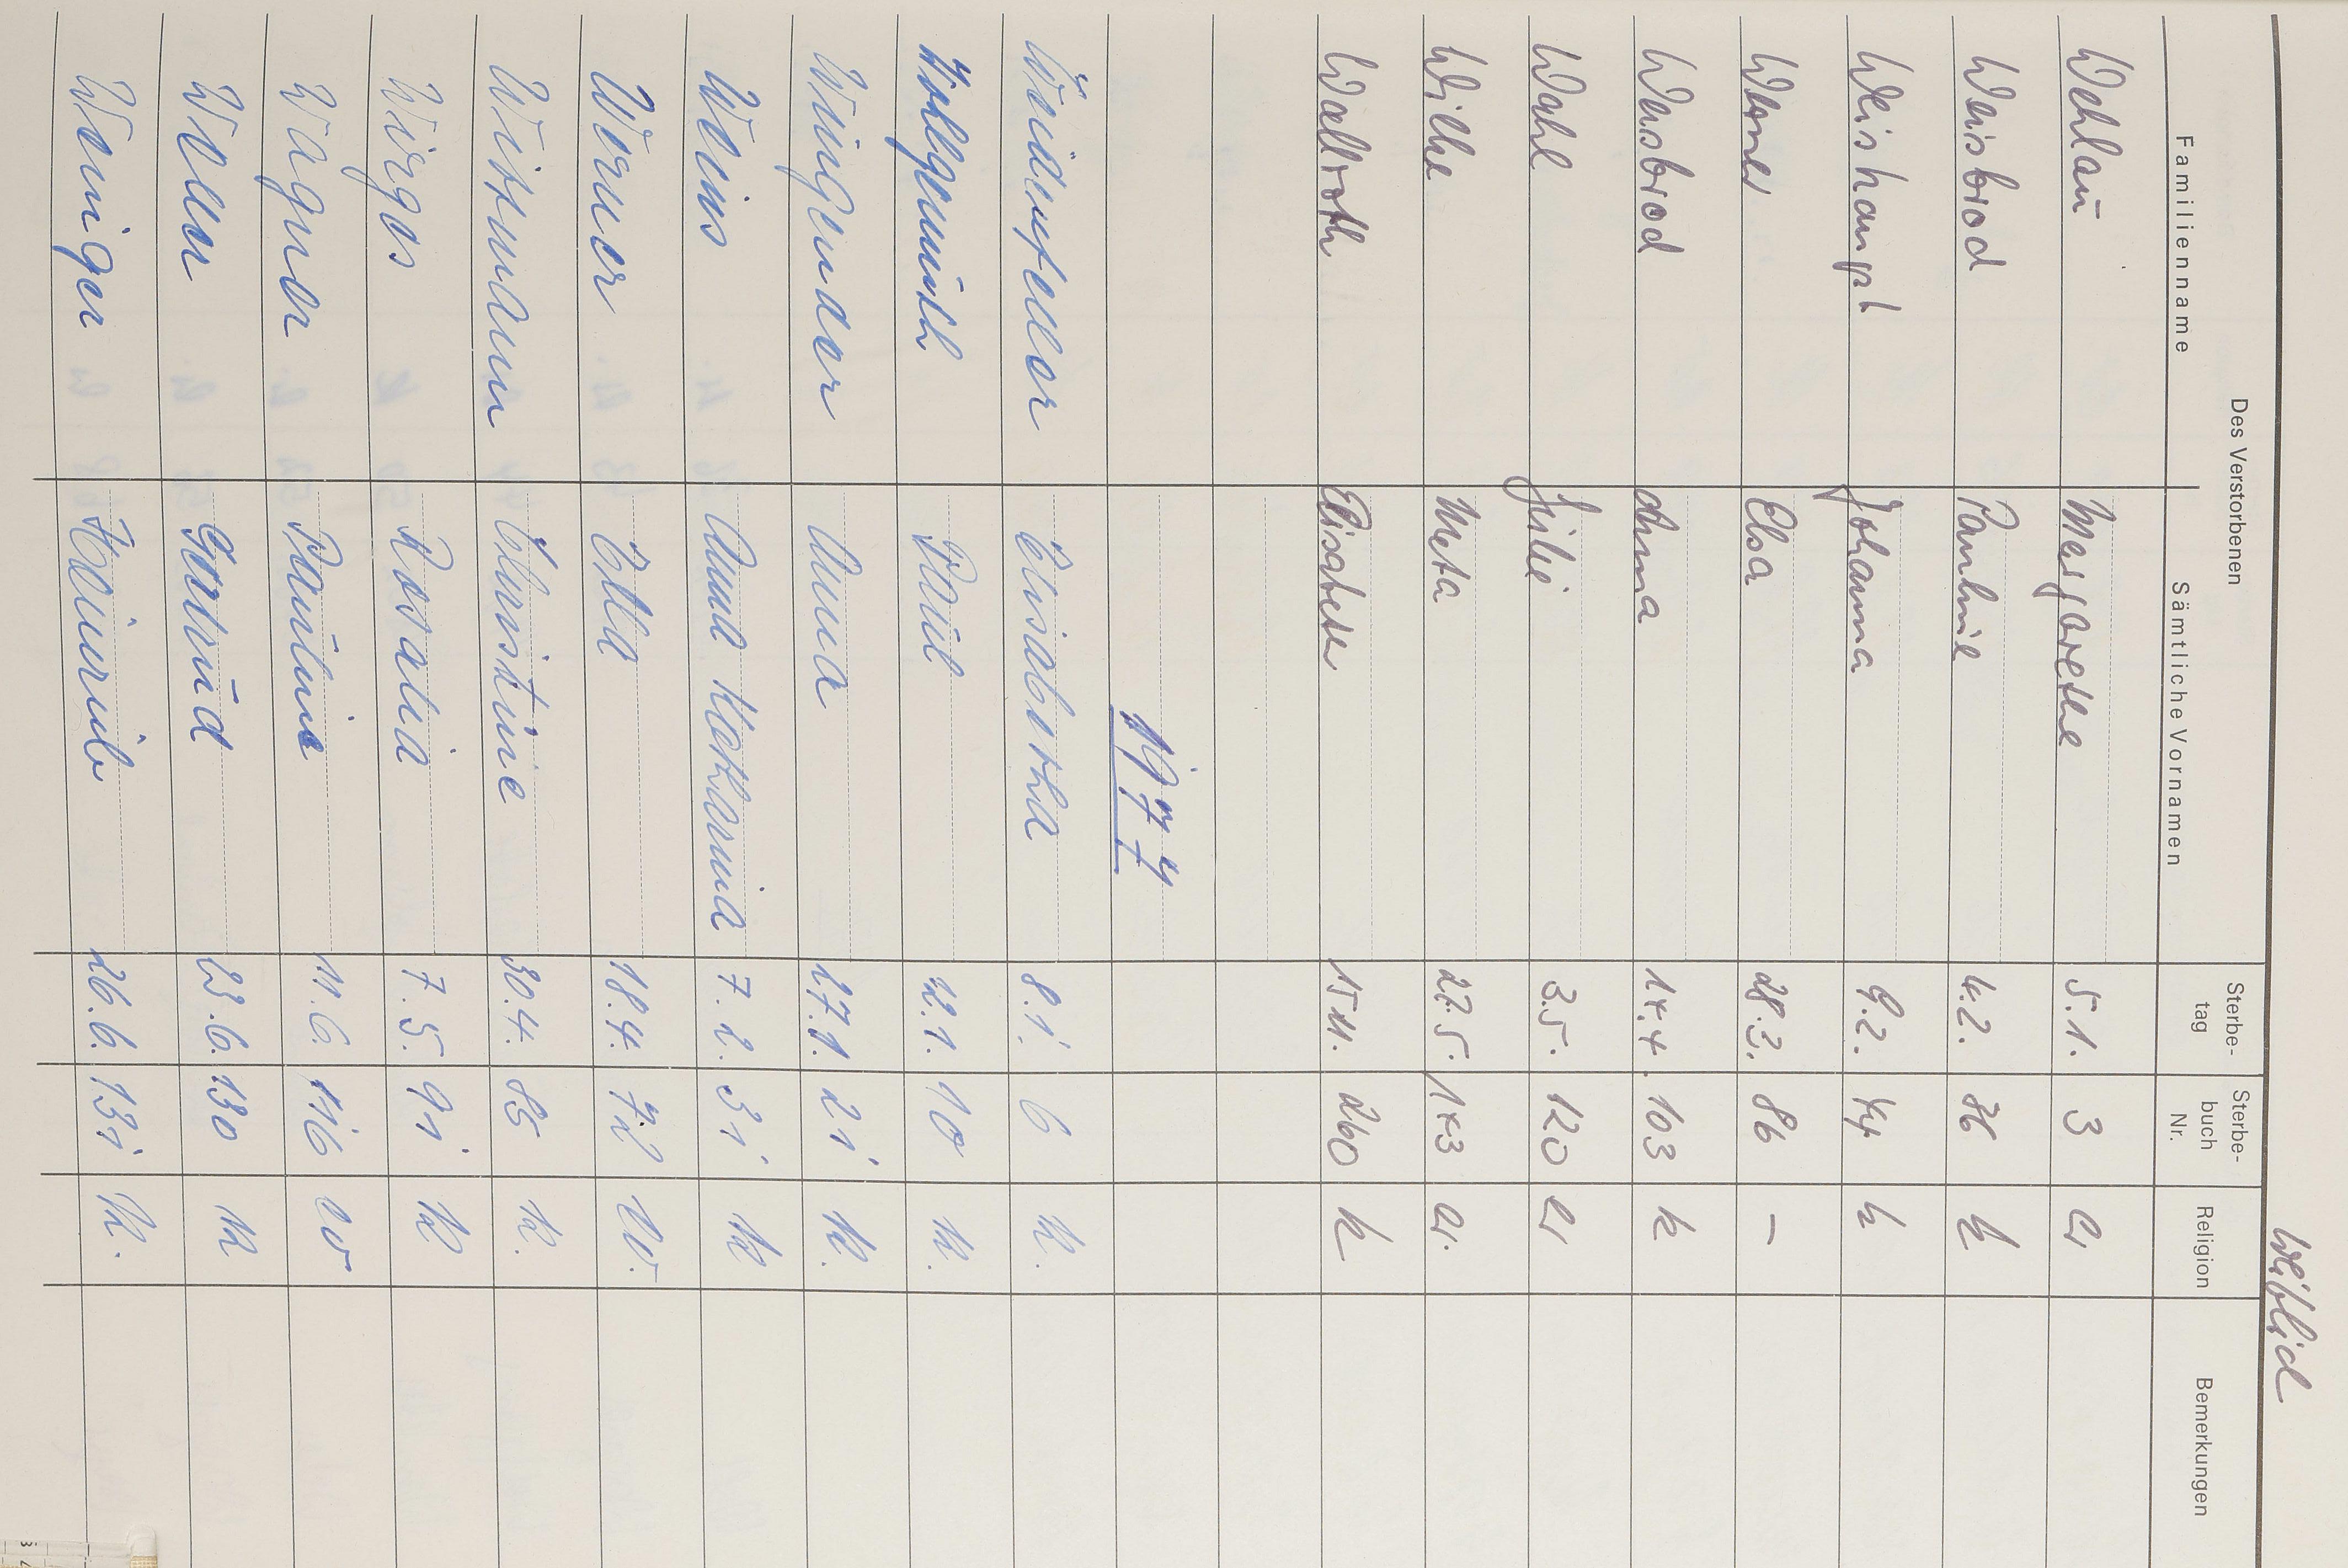 weiblich
Des Verstorbenen
Familienname Sämtliche Vornamen Sterbe-tag Sterbe-buch Nr. Religion Bemerkungen
Wehlau Margarethe 5.1. 3 ev
Weisbrod Pauline 4.2. 36 k
Weishaupt Johanna 9.2. 44 k
Werner Elsa 28.3. 86 –
Weisbrod Anna 14.4. 103 k
Wahl Julie 3.5. 120 ev
Wilke Meta 27.5. 143 ev.
Wallroth Elisabeth 15.11. 260 k
1977
Weidenfeller Elisabetha 8.1. 6 k.
Wohlgemuth Paula 12.1. 10 k.
Wingender Anna 27.1. 21 k.
Weins Anna Katharina 7.2. 31 k
Werner Ella 18.4. 72 ev.
Wissmann Christine 30.4. 85 k.
Wirges Rosalia 7.5. 91 k
Wagner Pauline 11.6. 116 ev
Weller Gertrud 23.6. 130 k
Weniger 26.6. 131 k.